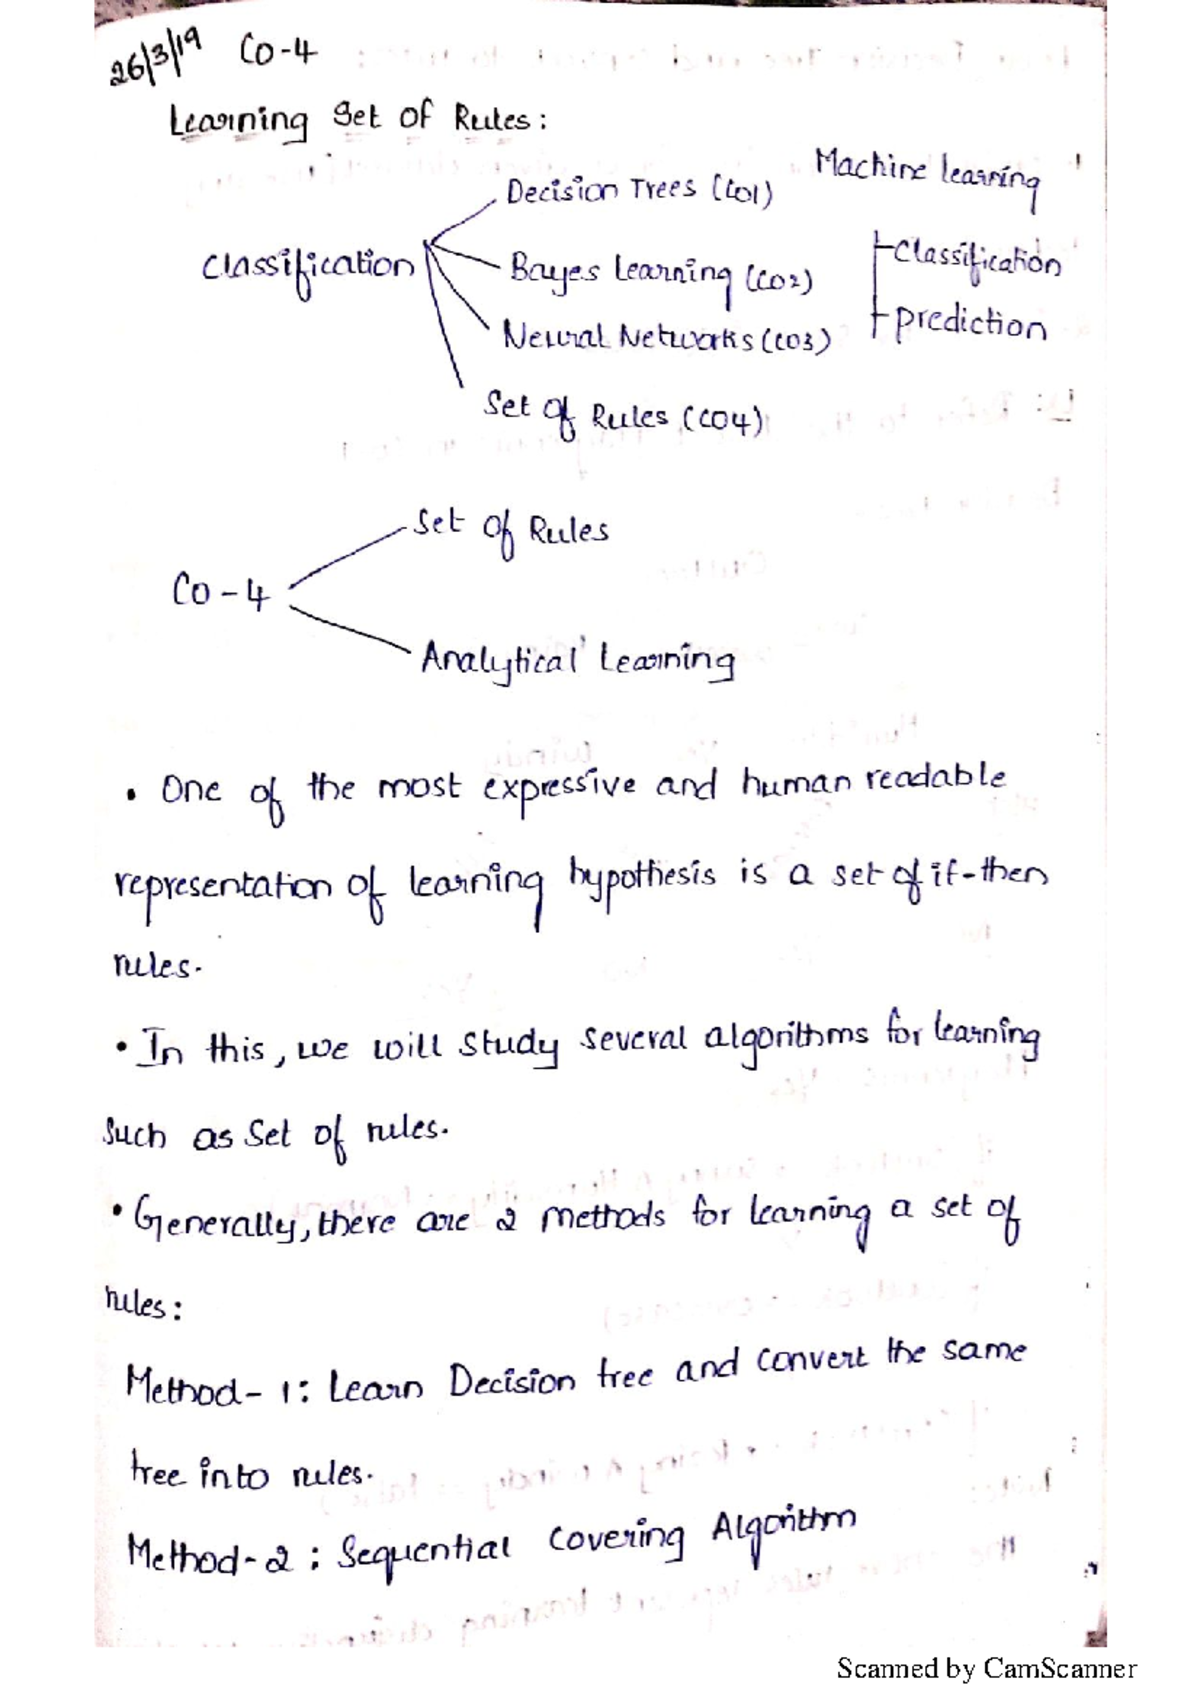 26/3/19 CO-4
Learning Set of Rules:
Machine learning
Decision Trees (CO1)
Classification
Bayes Learning (CO2)
Classification
Neural Networks (CO3)
prediction
Set of Rules (CO4)
Set of Rules
CO-4
Analytical Learning
• One of the most expressive and human readable
representation of learning hypothesis is a set of if-then
rules.
• In this, we will study several algorithms for learning
such as Set of rules.
• Generally, there are 2 methods for learning a set of
rules:
Method-1: Learn Decision tree and convert the same
tree into rules.
Method-2: Sequential Covering Algorithm
Scanned by CamScanner